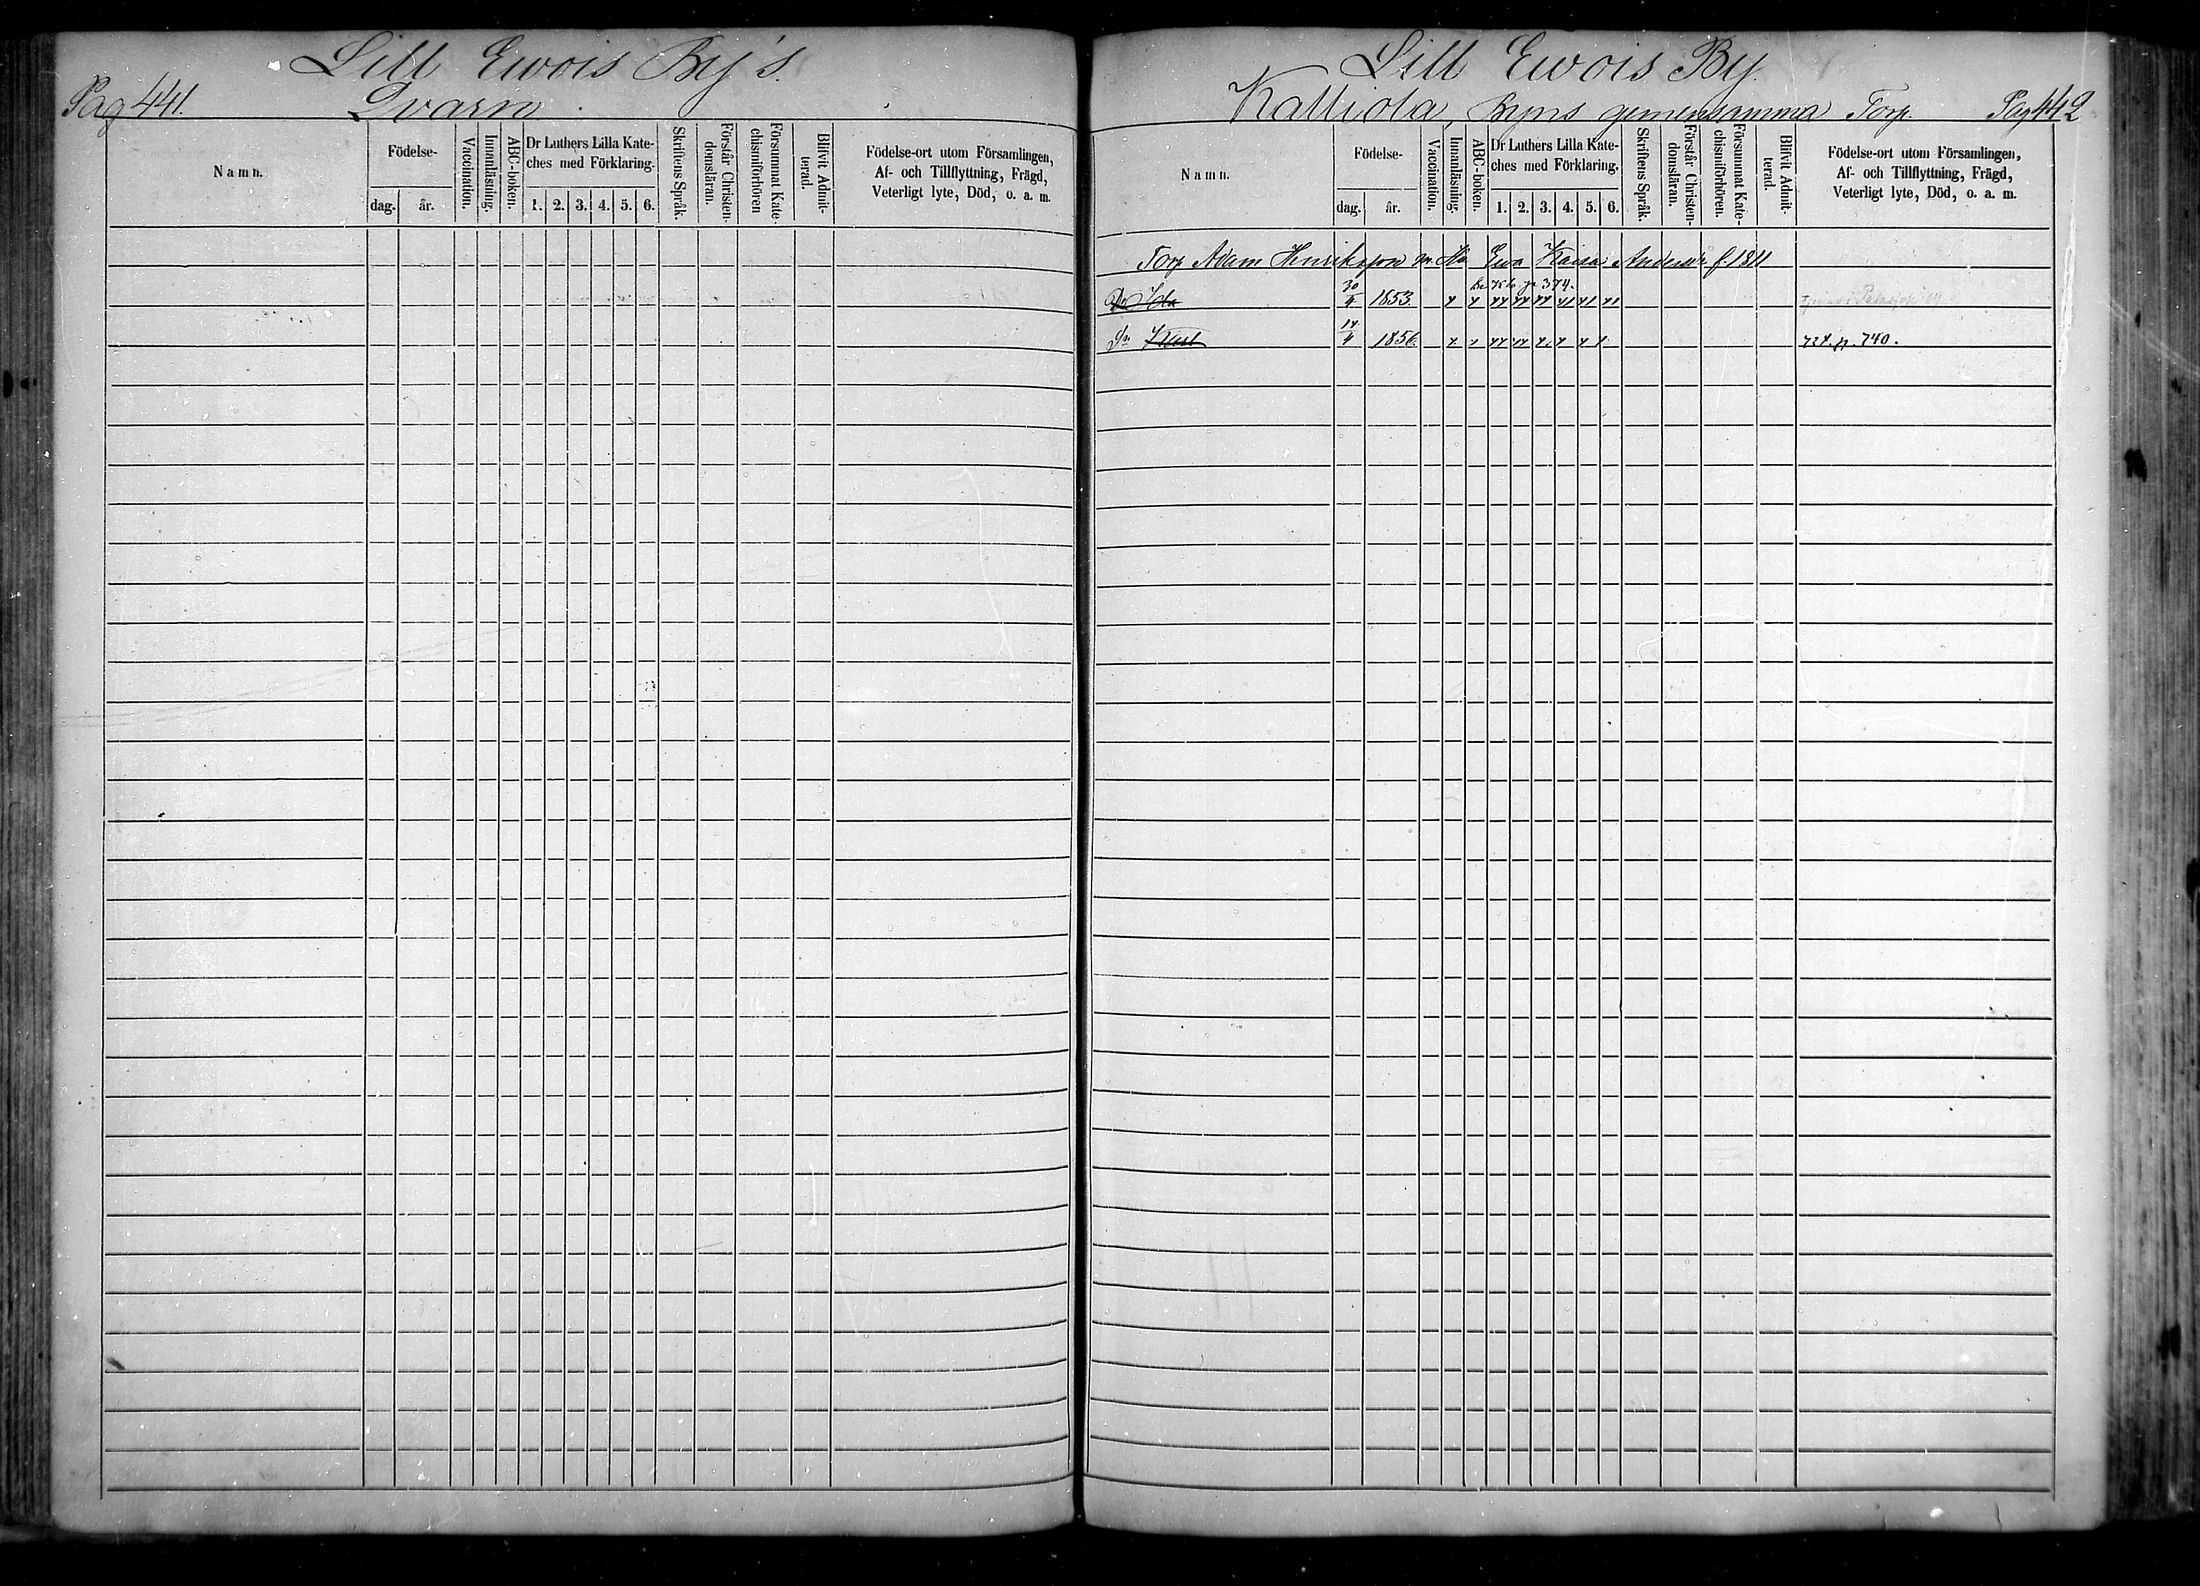 Lill Ewois By's.
Pag 441.
Qvarn
Namn.
Födelse-
dag.
år.
Vaccination.
Innanläsning.
ABC-boken.
Dr Luthers Lilla Kate-
ches med Förklaring.
1. 2. 3. 4. 5. 6.
Skriftens Språk.
Förstår Christen-
domsläran.
Försummat Kate-
chismiförhören
Blifvit Admit-
terad.
Födelse-ort utom Församlingen,
Af- och Tillflyttning, Frägd,
Veterligt lyte, Död, o. a. m.
Lill Ewois By.
Kalliola, Byns gemensamma Torp. Pag 442
Namn.
Födelse-
dag.
år.
Vaccination.
Innanläsning.
ABC-boken.
Dr Luthers Lilla Kate-
ches med Förklaring.
1. 2. 3. 4. 5. 6.
Skriftens Språk.
Förstår Christen-
domsläran.
Försummat Kate-
chismiförhören.
Blifvit Admit-
terad.
Födelse-ort utom Församlingen,
Af- och Tillflyttning, Frägd,
Veterligt lyte, Död, o. a. m.
Torp Adam Henriksson m Ewa Kaisa Andersdr f 1811
374.
30 1853
14 1856 740.